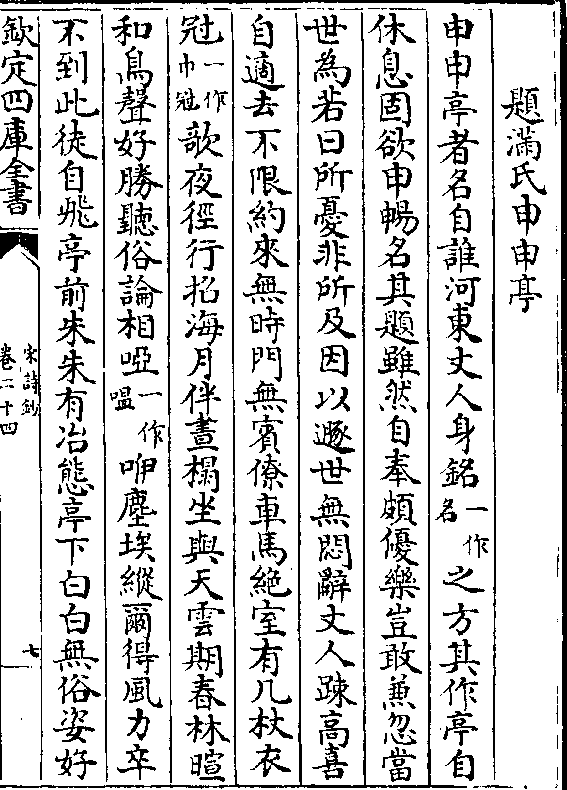 題滿氏申申亭
申申亭者名自誰河東丈人身銘一作名之方其作亭自
休息固欲申暢名其題雖然自奉頗優樂豈敢兼忽當
世為若曰所憂非所及因以遯世無悶辭丈人踈高喜
自適去不限約來無時門無賓僚車馬絶室有几杖衣
冠一作巾冠歌夜徑行招海月伴晝榻坐與天雲期春林暄
和鳥聲好勝聽俗論相啞一作嗢咿塵埃縱爾得風力卒
不到此徒自飛亭前朱朱有冶態亭下白白無俗姿好
欽定四庫全書
宋詩鈔
卷二十四
七